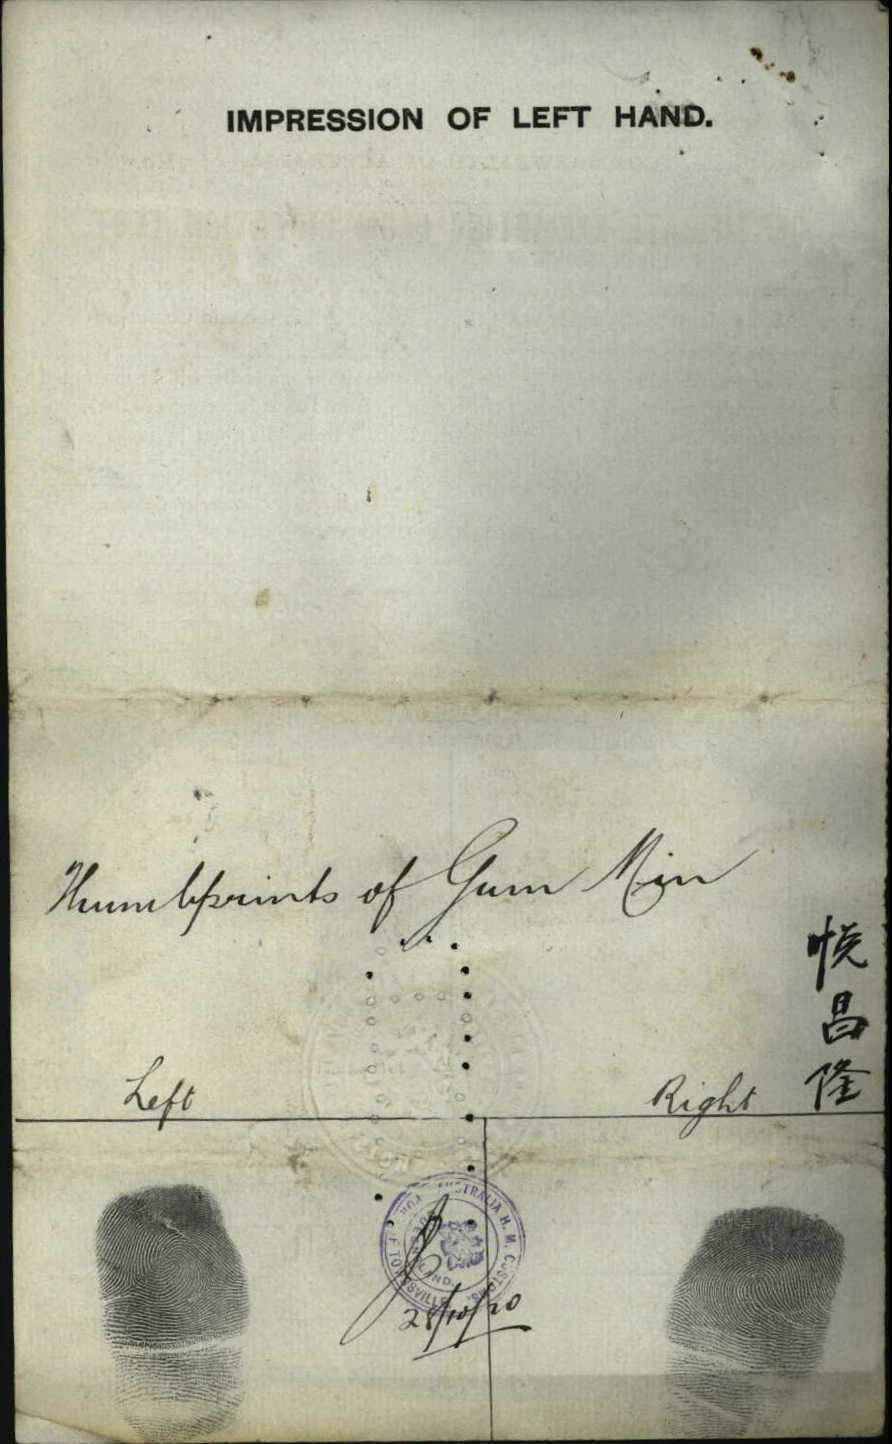 IMPRESSION OF LEFT HAND.
Thumbprints of Gum Min
悦
昌
隆
Left
Right
AUSTRALIA H. M. CUSTOMS
TOWNSVILLE
28/10/20